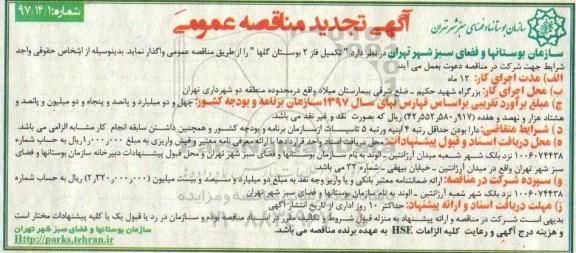 شماره: ۹۷/۱۴/۱
آگهی تجدید مناقصه عمومی
سازمان بوستانها و فضای سبز شهر تهران
سازمان بوستانها و فضای سبز شهر تهران در نظر دارد " تکمیل فاز ۲ بوستان گلها " را از طریق مناقصه عمومی واگذار نماید. بدینوسیله از اشخاص حقوقی واجد
شرایط جهت شرکت در مناقصه دعوت بعمل می آید.
الف) مدت اجرای کار: ۱۲ ماه
ب) محل اجرای کار: بزرگراه شهید حکیم - ضلع شرقی بیمارستان میلاد واقع درمحدوده منطقه دو شهرداری تهران
ج) مبلغ برآورد تقریبی براساس فهارس بهای سال ۱۳۹۷ سازمان برنامه و بودجه کشور: چهل و دو میلیارد و پانصد و پنجاه و دو میلیون و پانصد و
هشتاد هزار و نهصد و هفده (۴۲,۵۵۲,۵۸۰,۹۱۷) ریال که بصورت نقد و غیر نقد می باشد.
د) شرایط متقاضی: دارا بودن حداقل رتبه ۴ ابنیه ورتبه ۵ تاسیسات ازسازمان برنامه و بودجه کشور و همچنین داشتن سابقه انجام کار مشابه الزامی می باشد.
ه) محل دریافت اسناد و قبول پیشنهادات: محل دریافت اسناد واحد قرارداد ها با ارائه معرفی نامه معتبر وفیش واریزی به مبلغ ۱,۰۰۰,۰۰۰ ریال به حساب شماره
۱۰۰۶۰۷۴۴۳۸ نزد بانک شهر شعبه میدان آرژانتین - الوند به نام سازمان بوستانها و فضای سبز شهر تهران و محل قبول پیشنهادات دبیرخانه سازمان بوستانها و فضای
سبز شهر تهران واقع در میدان آرژانتین - خیابان بیهقی - شماره ۳۲ می باشد.
و) سپرده شرکت در مناقصه: ارائه ضمانتنامه معتبر بانکی و یا واریز وجه نقد به مبلغ دو میلیارد و سیصد و بیست میلیون (۲,۳۲۰,۰۰۰,۰۰۰) ریال به حساب شماره
۱۰۰۶۰۷۴۴۳۸ نزد بانک شهر شعبه آرژانتین - الوند به نام سازمان بوستانها و فضای سبز شهر تهران
ز) مهلت دریافت اسناد و ارائه پیشنهاد: حداکثر ۱۰ روز اداری از تاریخ انتشار آگهی
بدیهی است شرکت در مناقصه و ارائه پیشنهاد به منزله قبول شروط و تکالیف مقرر در اسناد مناقصه بوده و سازمان در رد یا قبول یک یا کلیه پیشنهادات مختار است
و هزینه درج آگهی و رعایت کلیه الزامات HSE به عهده برنده مناقصه می باشد.
سازمان بوستانها و فضای سبز شهر تهران
Http://parks.tehran.ir